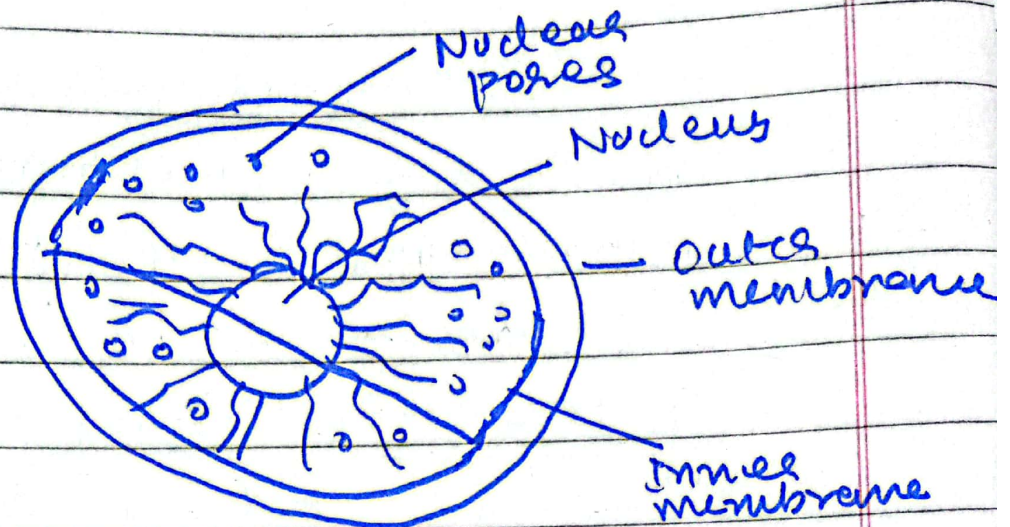 Nuclear
pores
Nucleus
Outer
membrane
Inner
membrane